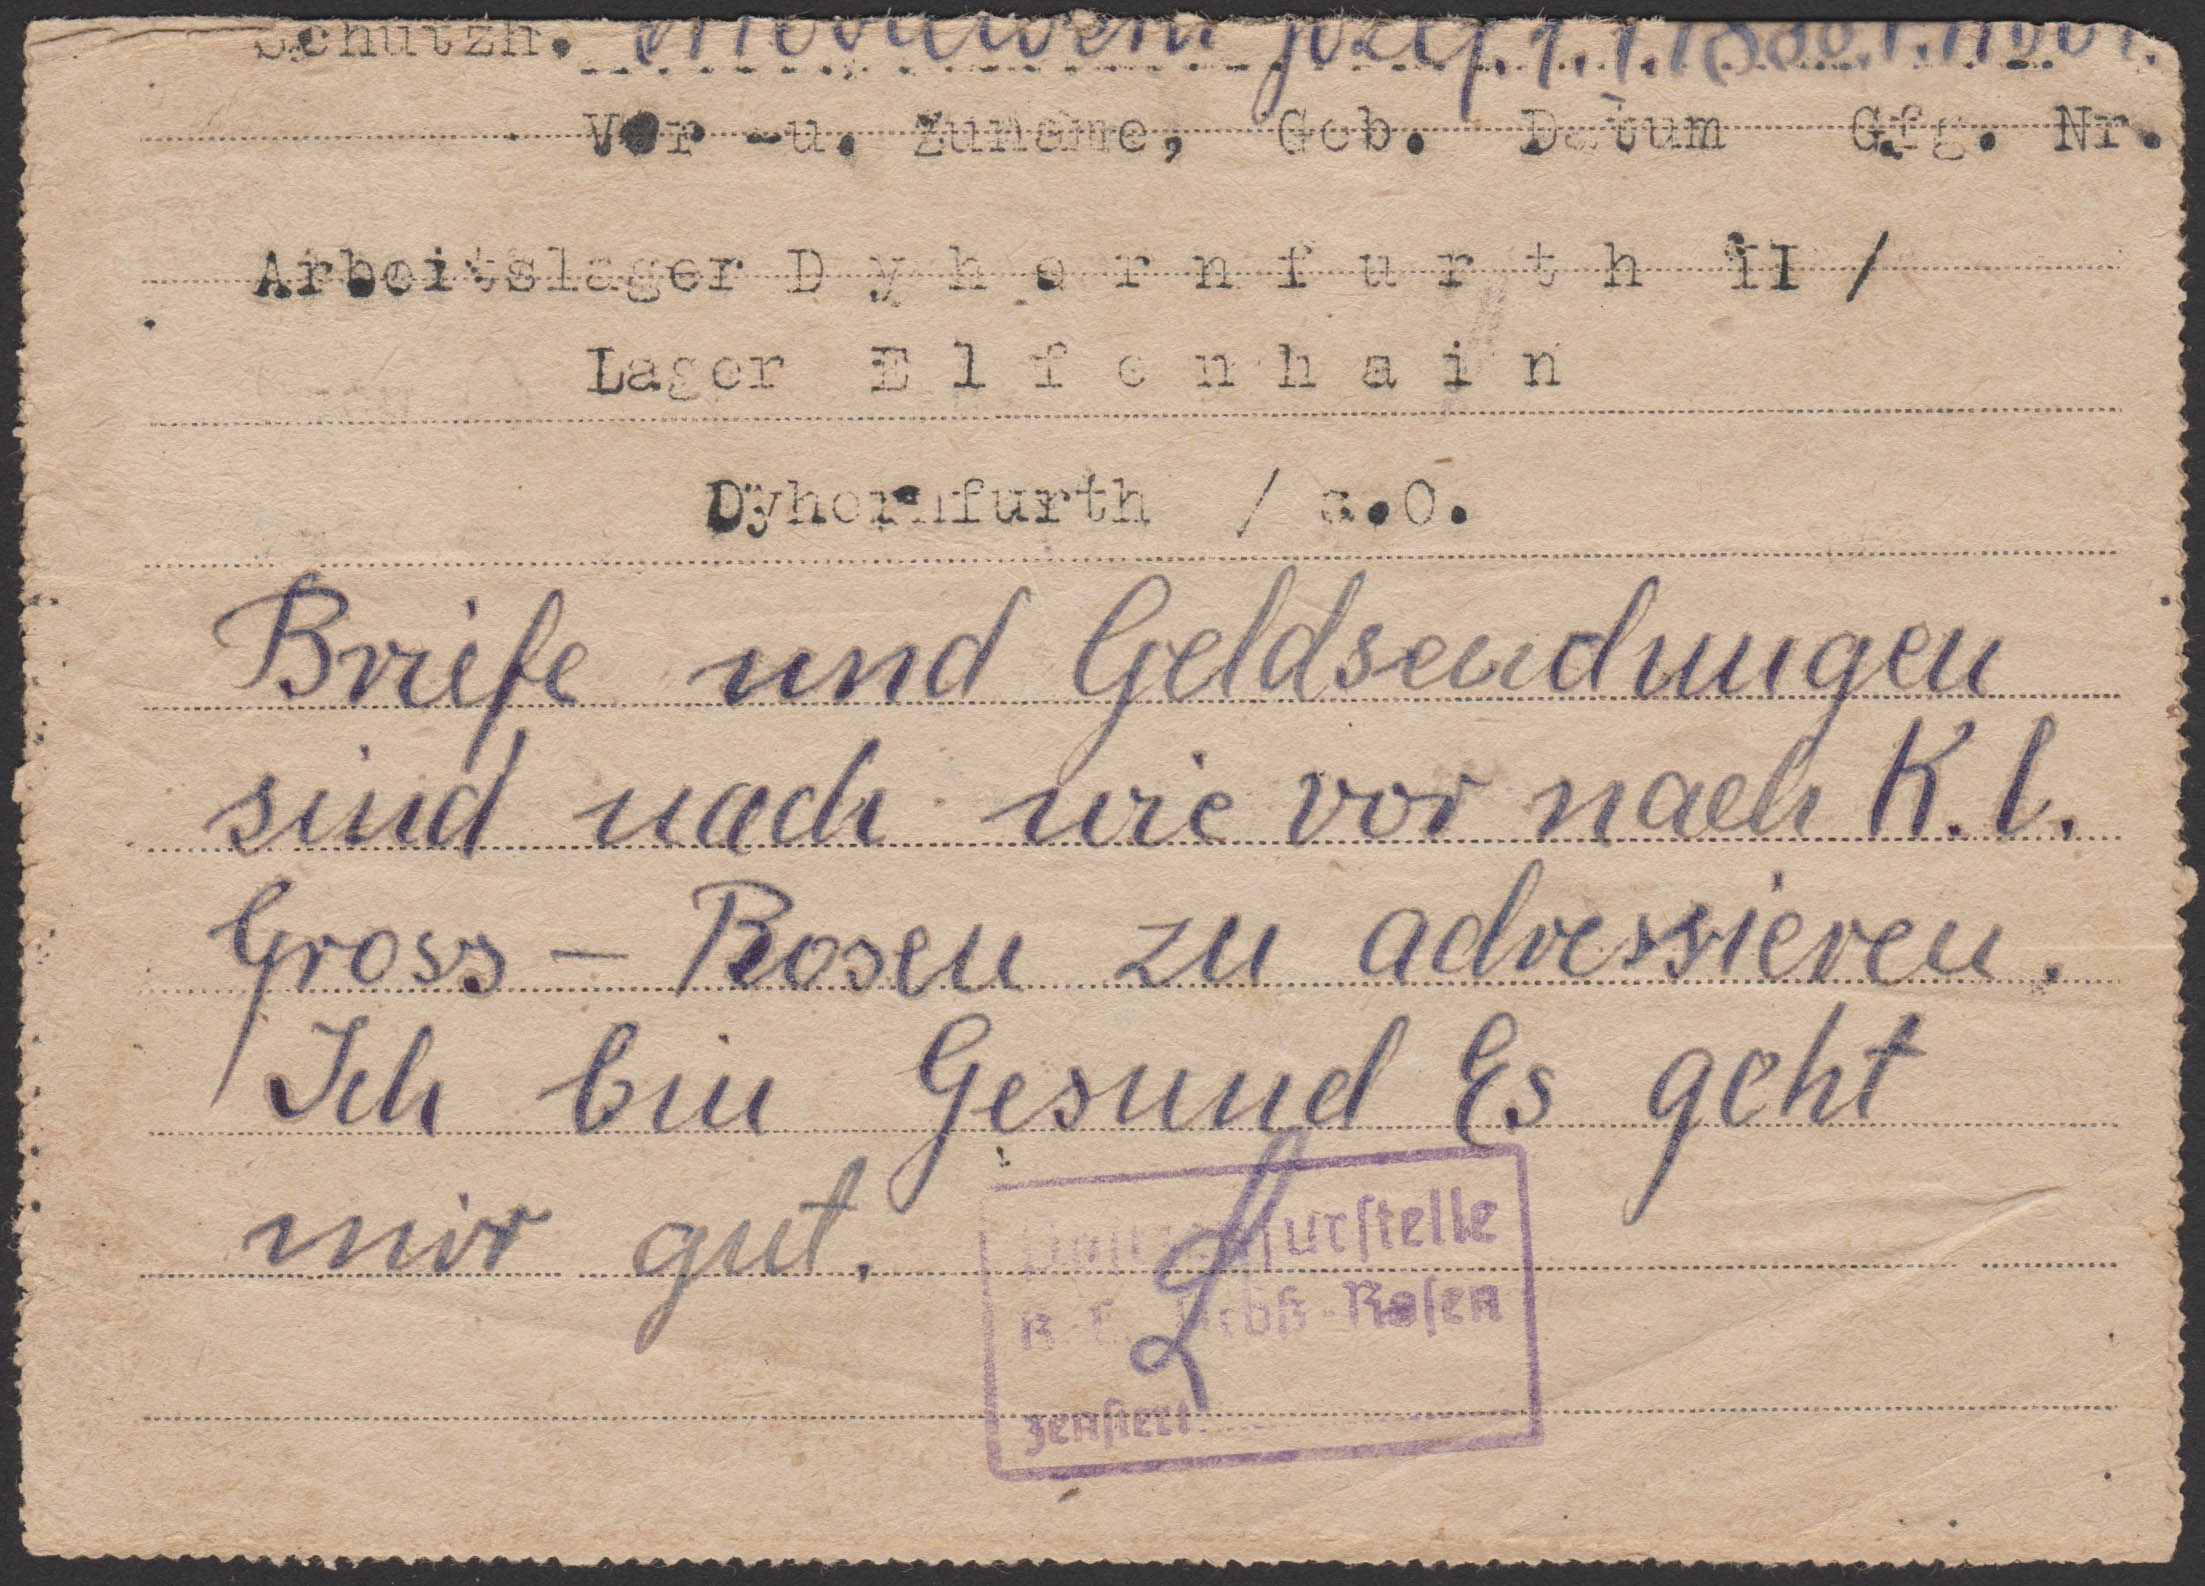 Schutzh. Josef
Vor -u. Zuname, Geb. Datum Gfg. Nr.
Arbeitslager D y h e r n f u r t h II /
Lager E l f e n h a i n
Dyhernfurth / a.O.
Briefe und Geldsendungen
sind nach wie vor nach K.l.
Gross - Rosen zu adressieren.
Ich bin Gesund Es geht
mir gut.
Postzensurstelle
K. L. Groß-Rosen
zensiert